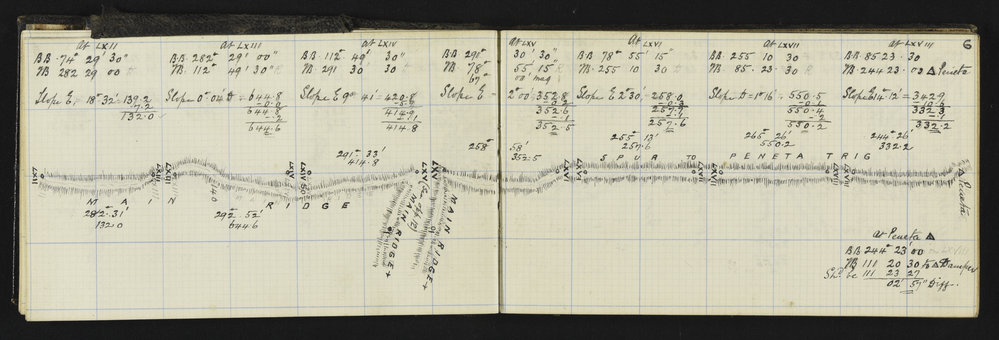 6
at LXII
BB. 74° 29' 30"
FB 282 29 00
Slope E. 18° 32' = 139.2
7.2
132.0
at LXIII
BB 282° 29' 00"
FB. 112° 49' 30"
Slope 0° 04' D = 644.8
0.0
644.8
.2
644.6
at LXIV
BB. 112° 49' 30"
FB 291 30 30
Slope E 9° 41' = 420.8
414.9
.1
414.8
at LXV
BB 291° 30' 30"
FB 78° 55' 15"
67° 00' mag
Slope E 2° 00' = 352.8
0.2
352.6
.1
352.5
at LXVI
BB 78° 55' 15"
FB. 255 10 30
Slope E 2° 30' = 258.0
0.3
257.7
.1
257.6
at LXVII
BB 255 10 30
FB. 85. 23 30
Slope D = 1° 16' = 550.5
0.1
550.4
.2
550.2
at LXVIII
BB 85 23. 30
FB. 244. 23. 00 △ Peneta
Slope E 14° 12' = 342.9
10.6
332.3
.1
332.2
291° 33'
414.8
258° 58'
352.5
255° 13'
257.6
265° 26'
550.2
244° 26'
332.2
SPUR TO PENETA TRIG
LXII
LXIII
LXIV
LXV
LXVI
LXVII
LXVIII
△ Peneta
MAIN RIDGE
282° 31'
132.0
292° 52'
644.6
MAIN RIDGE
MAIN RIDGE
at Peneta △
BB 244° 23' 00
FB 111 20 30 to △
Shd be 111 23 27
02' 57" Diff.